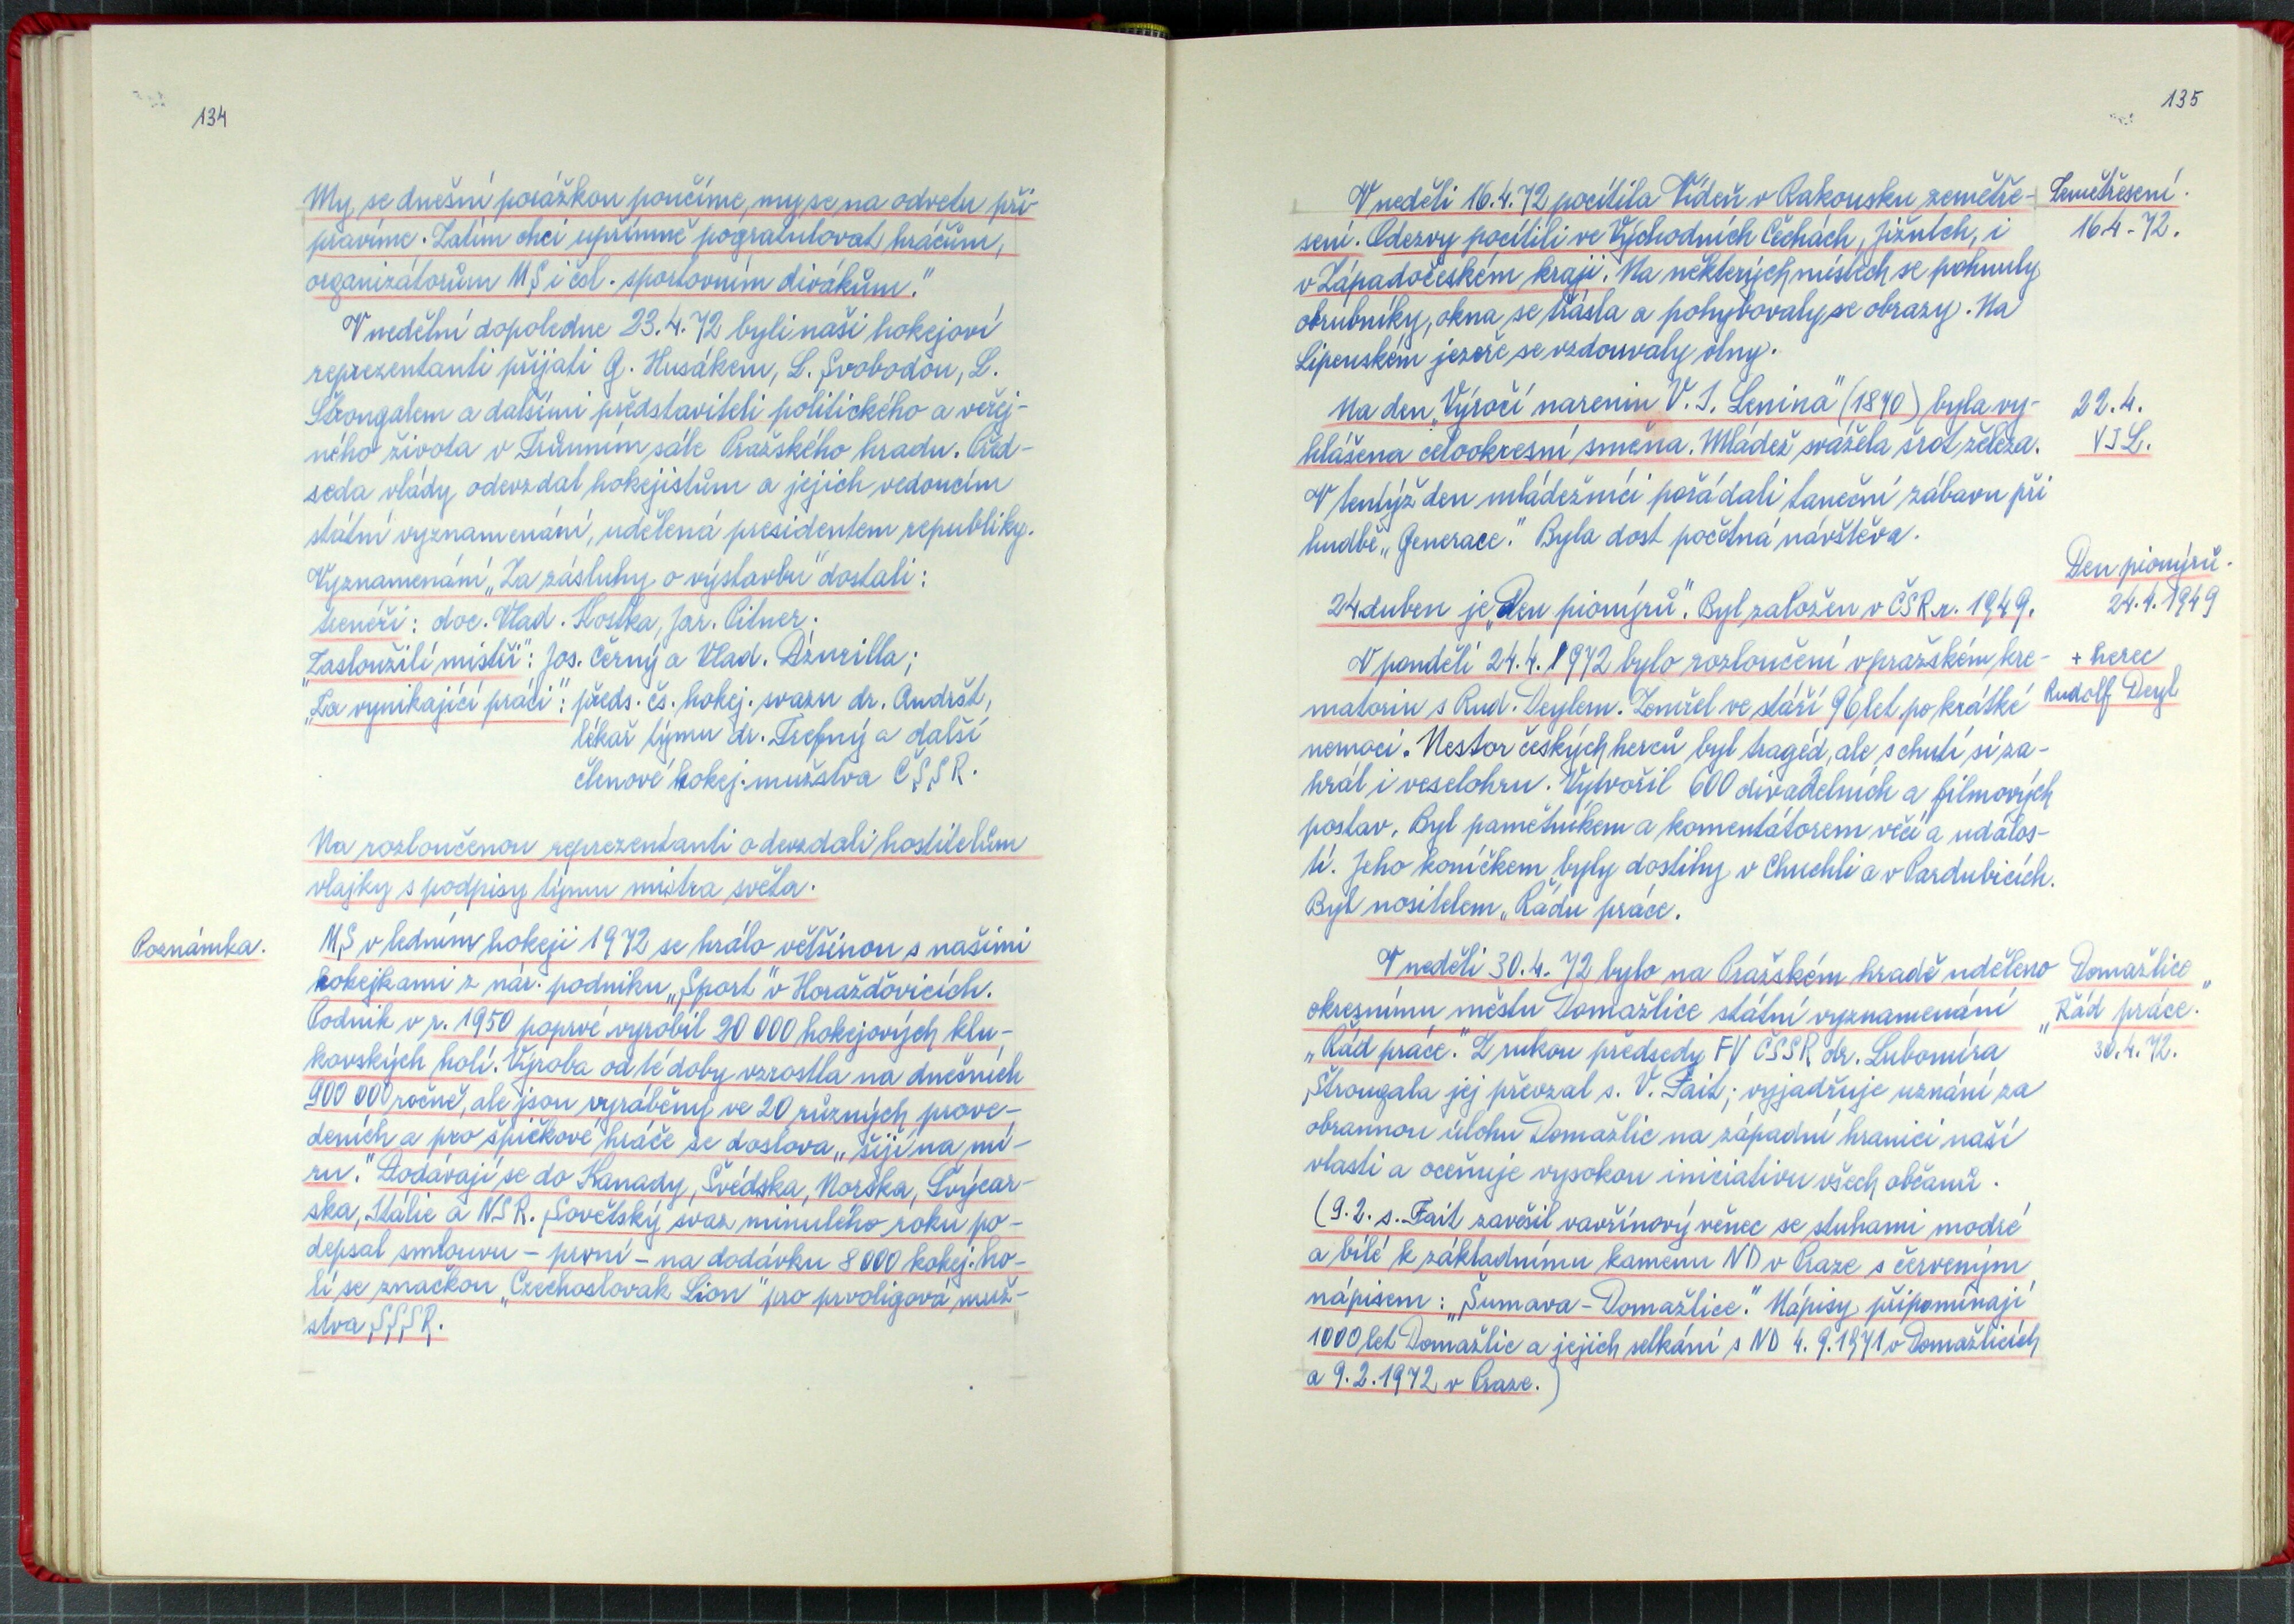 134
My se dnešní porážkou poučíme, my se na odvetu při-
pravíme. Zatím chci upřímně pogratulovat hráčům,
organizátorům MS i čsl. sportovním divákům."
V nedělní dopoledne 23.4.72 byli naši hokejoví
reprezentanti přijati G. Husákem, L. Svobodou, L.
Štrougalem a dalšími představiteli politického a veřej-
ného života v Trůnním sále Pražského hradu. Před-
seda vlády odevzdal hokejistům a jejich vedoucím
státní vyznamenání, udělená presidentem republiky.
Vyznamenání „Za zásluhy o výstavbu" dostali:
trenéři: doc. Vlad. Kostka, Jar. Pitner.
„Zasloužilí mistři": Jos. Černý a Vlad. Dzurilla;
„Za vynikající práci": předs. čs. hokej. svazu dr. Andršt,
lékař týmu dr. Trefný a další
členové hokej. mužstva ČSSR.
Na rozloučenou reprezentanti odevzdali hostitelům
vlajky s podpisy týmu mistra světa.
Poznámka.
MS v ledním hokeji 1972 se hrálo většinou s našimi
hokejkami z nár. podniku „Sport" v Horažďovicích.
Podnik v r. 1950 poprvé vyrobil 20 000 hokejových klu-
kovských holí. Výroba od té doby vzrostla na dnešních
900 000 ročně, ale jsou vyráběny ve 20 různých prove-
deních a pro špičkové hráče se doslova „šijí na mí-
ru." Dodávají se do Kanady, Švédska, Norska, Švýcar-
ska, Itálie a NSR. Sovětský svaz minulého roku po-
depsal smlouvu - první - na dodávku 8 000 hokej. ho-
lí se značkou „Czechoslovak Lion" pro prvoligová muž-
stva SSSR.
135
V neděli 16.4.72 pocítila Vídeň v Rakousku zemětře-
sení. Odezvy pocítili ve Východních Čechách, Jižních, i
v Západočeském kraji. Na některých místech se pohnuly
obrubníky, okna se třásla a pohybovaly se obrazy. Na
Lipenském jezeře se vzdouvaly vlny.
Zemětřesení.
16.4-72.
Na den „Výročí narenin V. I. Lenina" (1870) byla vy-
hlášena celookresní směna. Mládež svážela šrot železa.
V tentýž den mládežníci pořádali taneční zábavu při
hudbě „Generace." Byla dost početná návštěva.
22.4.
VIL.
24. duben je „Den pionýrů". Byl založen v ČSR r. 1949.
Den pionýrů.
24.4.1949
V pondělí 24.4.1972 bylo rozloučení v pražském kre-
matoriu s Rud. Deylem. Zemřel ve stáří 96 let po krátké
nemoci. Nestor českých herců byl tragéd, ale s chutí si za-
hrál i veselohru. Vytvořil 600 divadelních a filmových
postav. Byl pamětníkem a komentátorem věcí a událos-
tí. Jeho koníčkem byly dostihy v Chuchli a v Pardubicích.
Byl nositelem „Řádu práce.
+ herec
Rudolf Deyl
V neděli 30.4.72 bylo na Pražském hradě uděleno
okresnímu městu Domažlice státní vyznamenání
„Řád práce." Z rukou předsedy FV ČSSR dr. Lubomíra
Štrougala jej převzal s. V. Fait; vyjadřuje uznání za
obrannou úlohu Domažlic na západní hranici naší
vlasti a oceňuje vysokou iniciativu všech občanů.
(9.2. s. Fait zavěsil vavřínový věnec se stuhami modré
a bílé k základnímu kamenu ND v Praze s červeným
nápisem: „Šumava - Domažlice." Nápisy připomínají
1000 let Domažlic a jejich setkání s ND 4.9.1971 v Domažlicích
a 9.2.1972 v Praze.)
Domažlice
„Řád práce."
30.4.72.